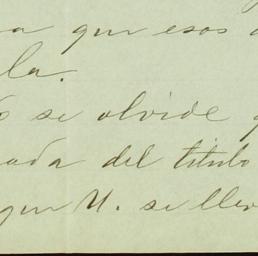 que esos
la.
se olvide
del titulo
que U. se llev